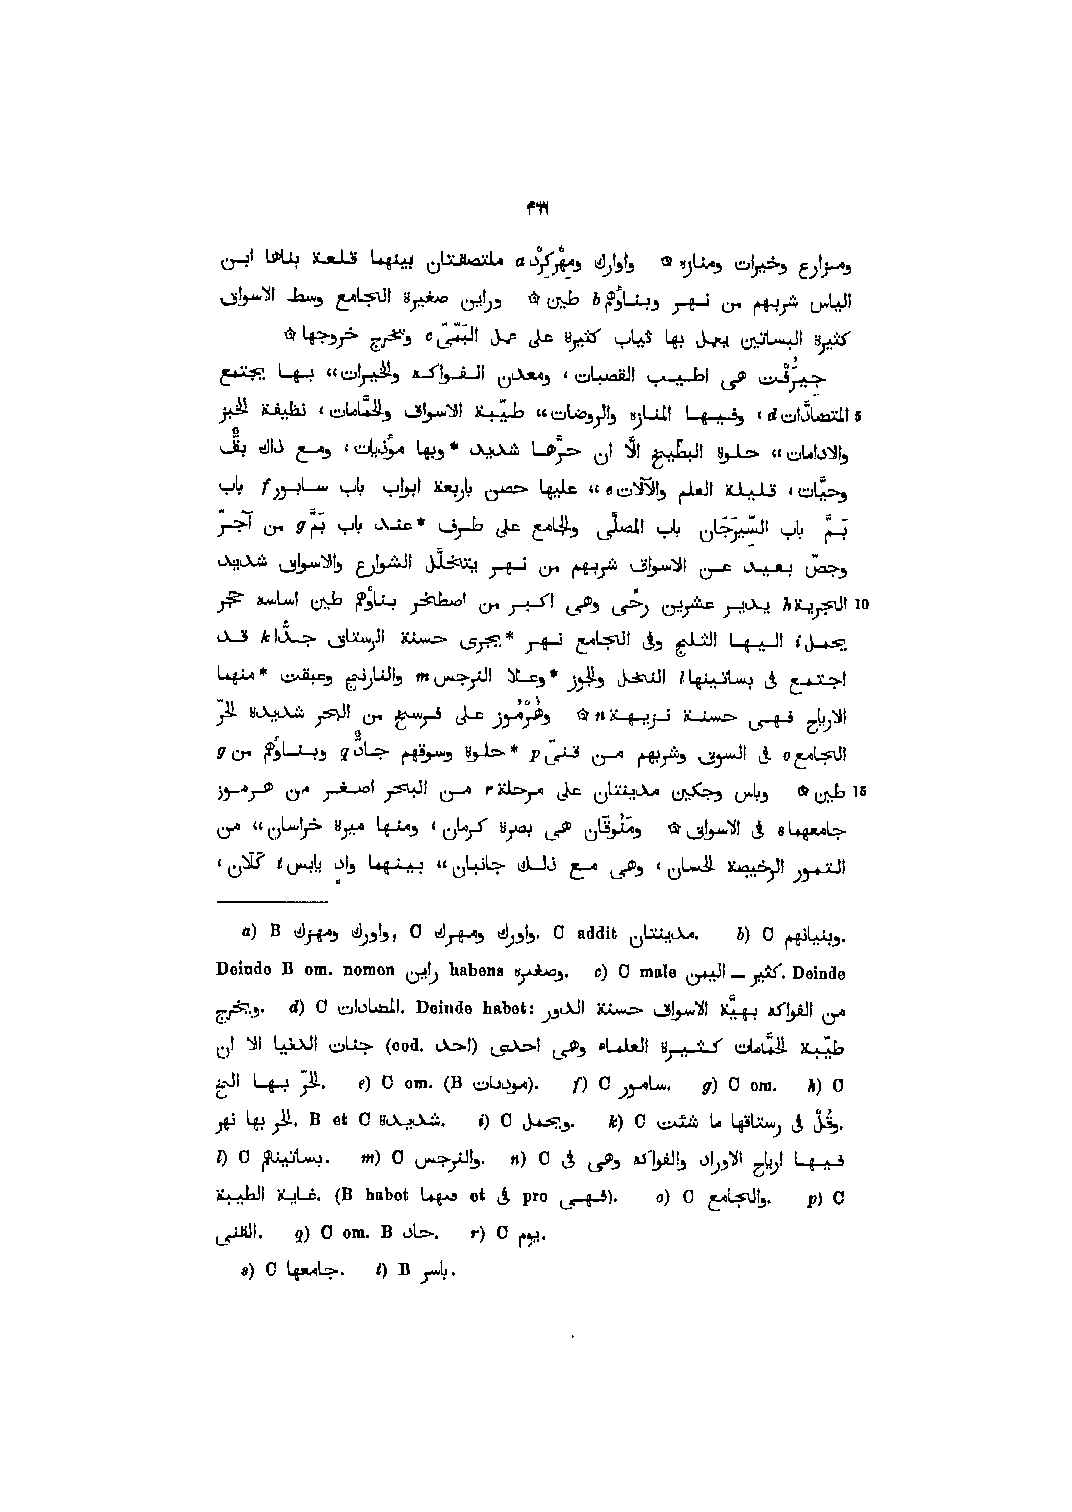 ٤٦٦
ومزارع وخيرات ومنازه ۞ واوارك ومِهْركِرْد a ملتصقتان بينهما قلعة بناها ابن
الياس شربهم من نهر وبناؤهم b طين ۞ وراين صغيرة الجامع وسط الاسواق
كثيرة البساتين يعمل بها ثياب كثيرة على عمل البَمّىّ c وتخرج خروجها ۞
جِيرُفْت هى اطيب القصبات، ومعدن الفواكه والخيرات“ بها يجتمع
5 المتضادّات d، وفيها المنازه والروضات“ طيّبة الاسواق والحمّامات، نظيفة الخبز
والادامات“ حلوة البطّيخ الّا ان حرّها شديد *وبها مؤذيات، ومع ذاك بقّ
وحيّات، قليلة العلم والآلات e“ عليها حصن باربعة ابواب باب سابور f باب
بَمَّ باب السِّيرَجَان باب المصلّى والجامع على طرف *عند باب بَمَّ g من آجرّ
وجصّ بعيد عن الاسواق شربهم من نهر يتخلّل الشوارع والاسواق شديد
10 الجرية h يدير عشرين رحًى وهى اكبر من اصطخر بناؤهم طين اساسه حجر
يحمل i اليها الثلج وفى الجامع نهر *يجرى حسنة الرستاق جدًّا k قد
اجتمع فى بساتينها l النخل والجوز *وعلا النرجس m والنارنج وعبقت *منهما
الارياح فهى حسنة نزيهة n ۞ وهُرْمُوز على فرسخ من البحر شديدة الحرّ
الجامع o فى السوق وشربهم من قنىّ p *حلوة وسوقهم جادّ q وبناؤهم من g
15 طين ۞ وباس وجكين مدينتان على مرحلة r من البحر اصغر من هرموز
جامعهما s فى الاسواق ۞ ومَنُوقَان هى بصرة كرمان، ومنها ميرة خراسان“ من
التمور الرخيصة الحسان، وهى مع ذلك جانبان“ بينهما وادٍ يابس t كلّان،
a) B واورك ومهزك, C واورك ومهرك. C addit مدينتان. b) C وبنيانهم.
Deinde B om. nomen راين habens وصغيره. c) C male كثير — اليمن. Deinde
ويخرج. d) C المضادات. Deinde habet: من الفواكه بهيّة الاسواق حسنة الدور
طيّبة الحمّامات كثيرة العلماء وهى احدى (cod. احد) جنات الدنيا الا ان
الحرّ بها الخ. e) C om. (B موديات). f) C سامور. g) C om. h) C
الحر بها نهر. B et C شديدة. i) C ويحمل. k) C وقُلْ فى رستاقها ما شئت.
l) C بساتينهم. m) C والنرجس. n) C فيها ارياح الاوراد والفواكه وهى فى
غاية الطيبة. (B habet منهما et فى pro فهى). o) C والجامع. p) C
القنى. q) C om. B حاد. r) C يوم.
s) C جامعها. t) B ياسر.